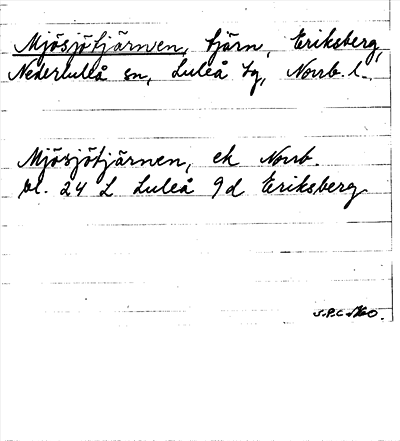 Mjösjötjärnen, tjärn, Eriksberg,
Nederluleå sn, Luleå tg, Norrb. l.
Mjösjötjärnen, ek Norrb.
bl. 24 L Luleå 9d Eriksberg